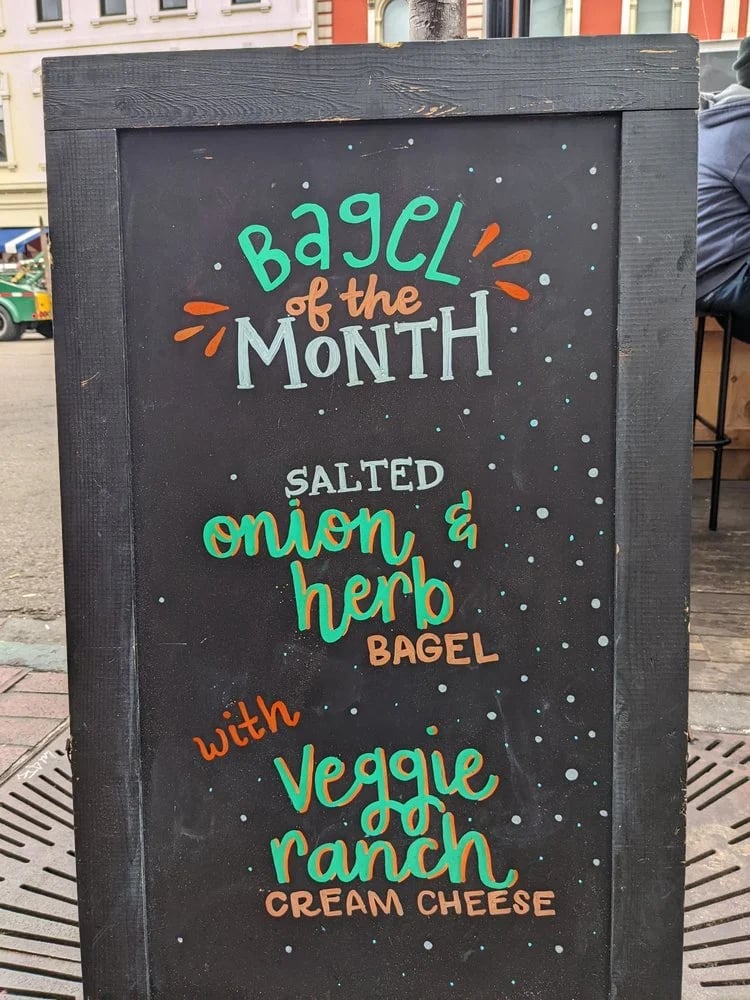 Bagel
of the
MONTH
SALTED
onion &
herb
BAGEL
with
Veggie
ranch
CREAM CHEESE